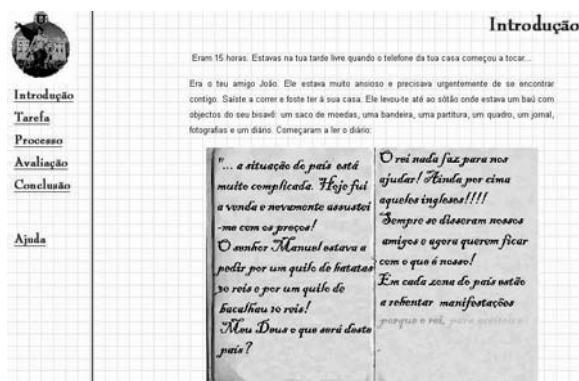 Introdução
Introdução
Tarefa
Processo
Avaliação
Conclusão
Ajuda
Eram 15 horas. Estavas na tua tarde livre quando o telefone da tua casa começou a tocar...
Era o teu amigo João. Ele estava muito ansioso e precisava urgentemente de se encontrar
contigo. Saíste a correr e foste ter à sua casa. Ele levou-te até ao sótão onde estava um baú com
objectos do seu bisavô: um saco de moedas, uma bandeira, uma partitura, um quadro, um jornal,
fotografias e um diário. Começaram a ler o diário:
"... a situação do país está
muito complicada. Hoje fui
a venda e novamente assustei
-me com os preços!
O senhor Manuel estava a
pedir por um quilo de batatas
30 reis e por um quilo de
bacalhau 10 reis!
Meu Deus o que será deste
país?
O rei nada faz para nos
ajudar! Ainda por cima
aqueles ingleses!!!!
Sempre se disseram nossos
amigos e agora querem ficar
com o que é nosso!
Em cada zona do país estão
a rebentar manifestações
porque o rei, para